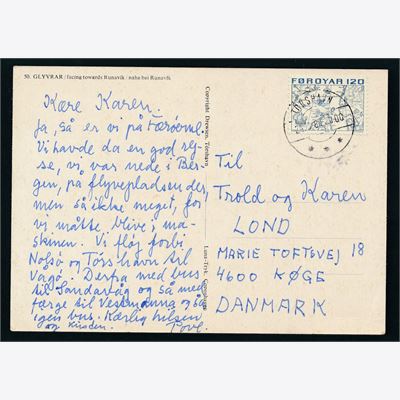 50. GLYVRAR / facing towards Runavik / nahe bei Runavík
Kære Karen.
Ja, så er vi på Færøerne
Vi havde da en god rej-
se, vi var nede i Ber-
gen, på flyvepladsen der,
men så ikke meget, for
vi måtte blive i ma-
skinen. Vi fløj forbi
Nolsø og Tórshavn til
Vagø. Derfra med bus
til Sandavåg og så med
færge til Vestmanna og så
igen bus. Kærlig hilsen
og Povl.
Copyright Drewsen, Tórshavn
FØROYAR 120
TÓRSHAVN
Til
Trold og Karen
LOND
MARIE TOFTSVEJ 18
4600 KØGE
DANMARK